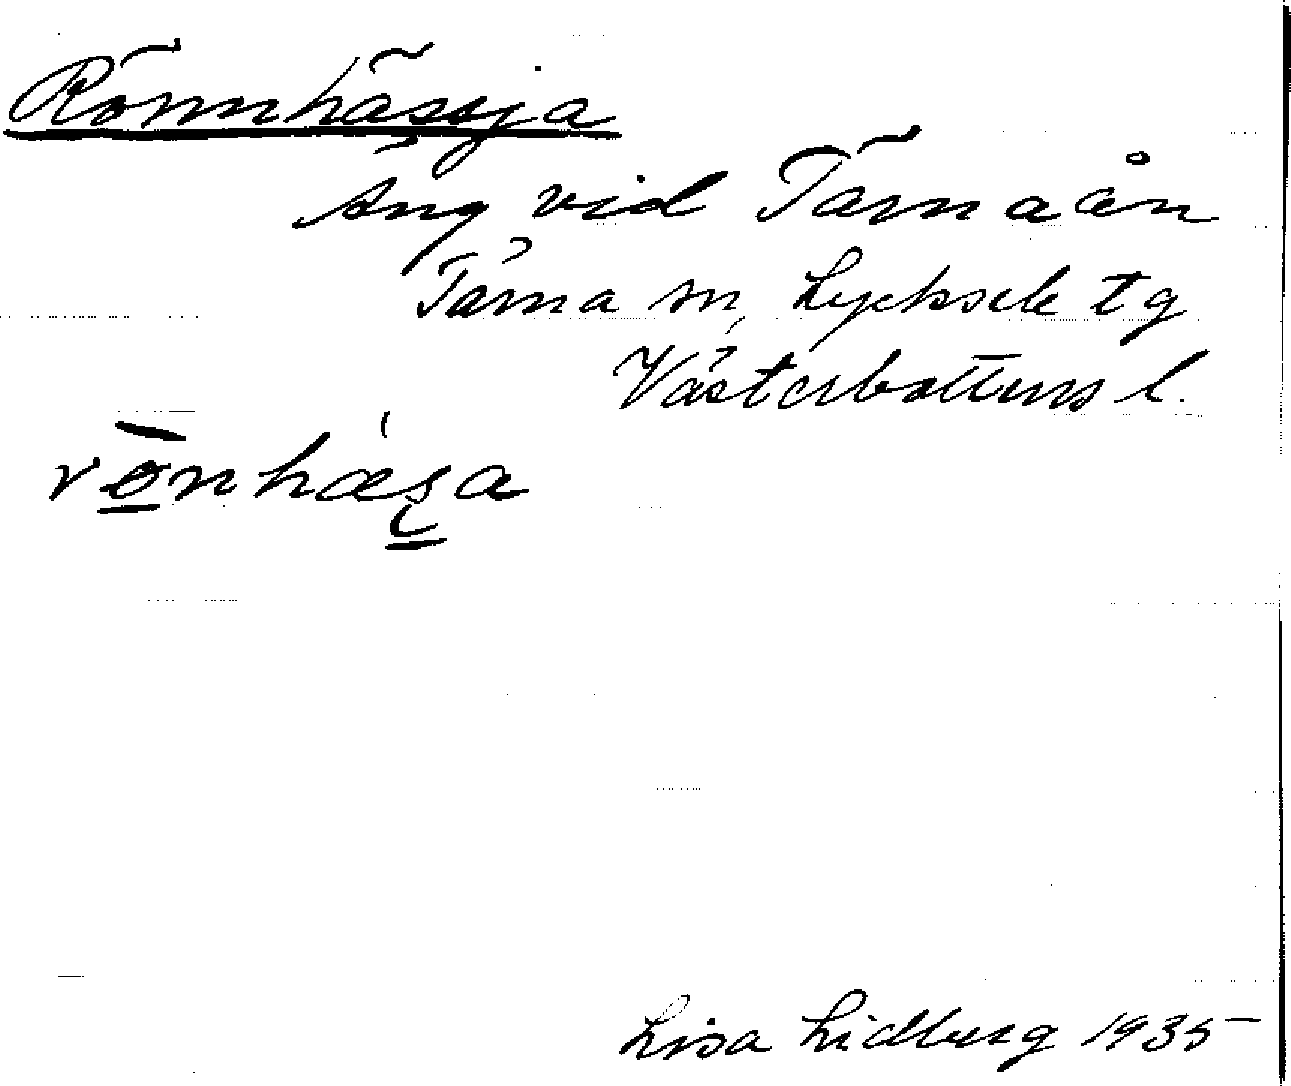 Rönnhässja
Äng vid Tärnaån
Tärna sn, Lycksele tg
Västerbottens l.
rönhæʂa
Lisa Lidberg 1935